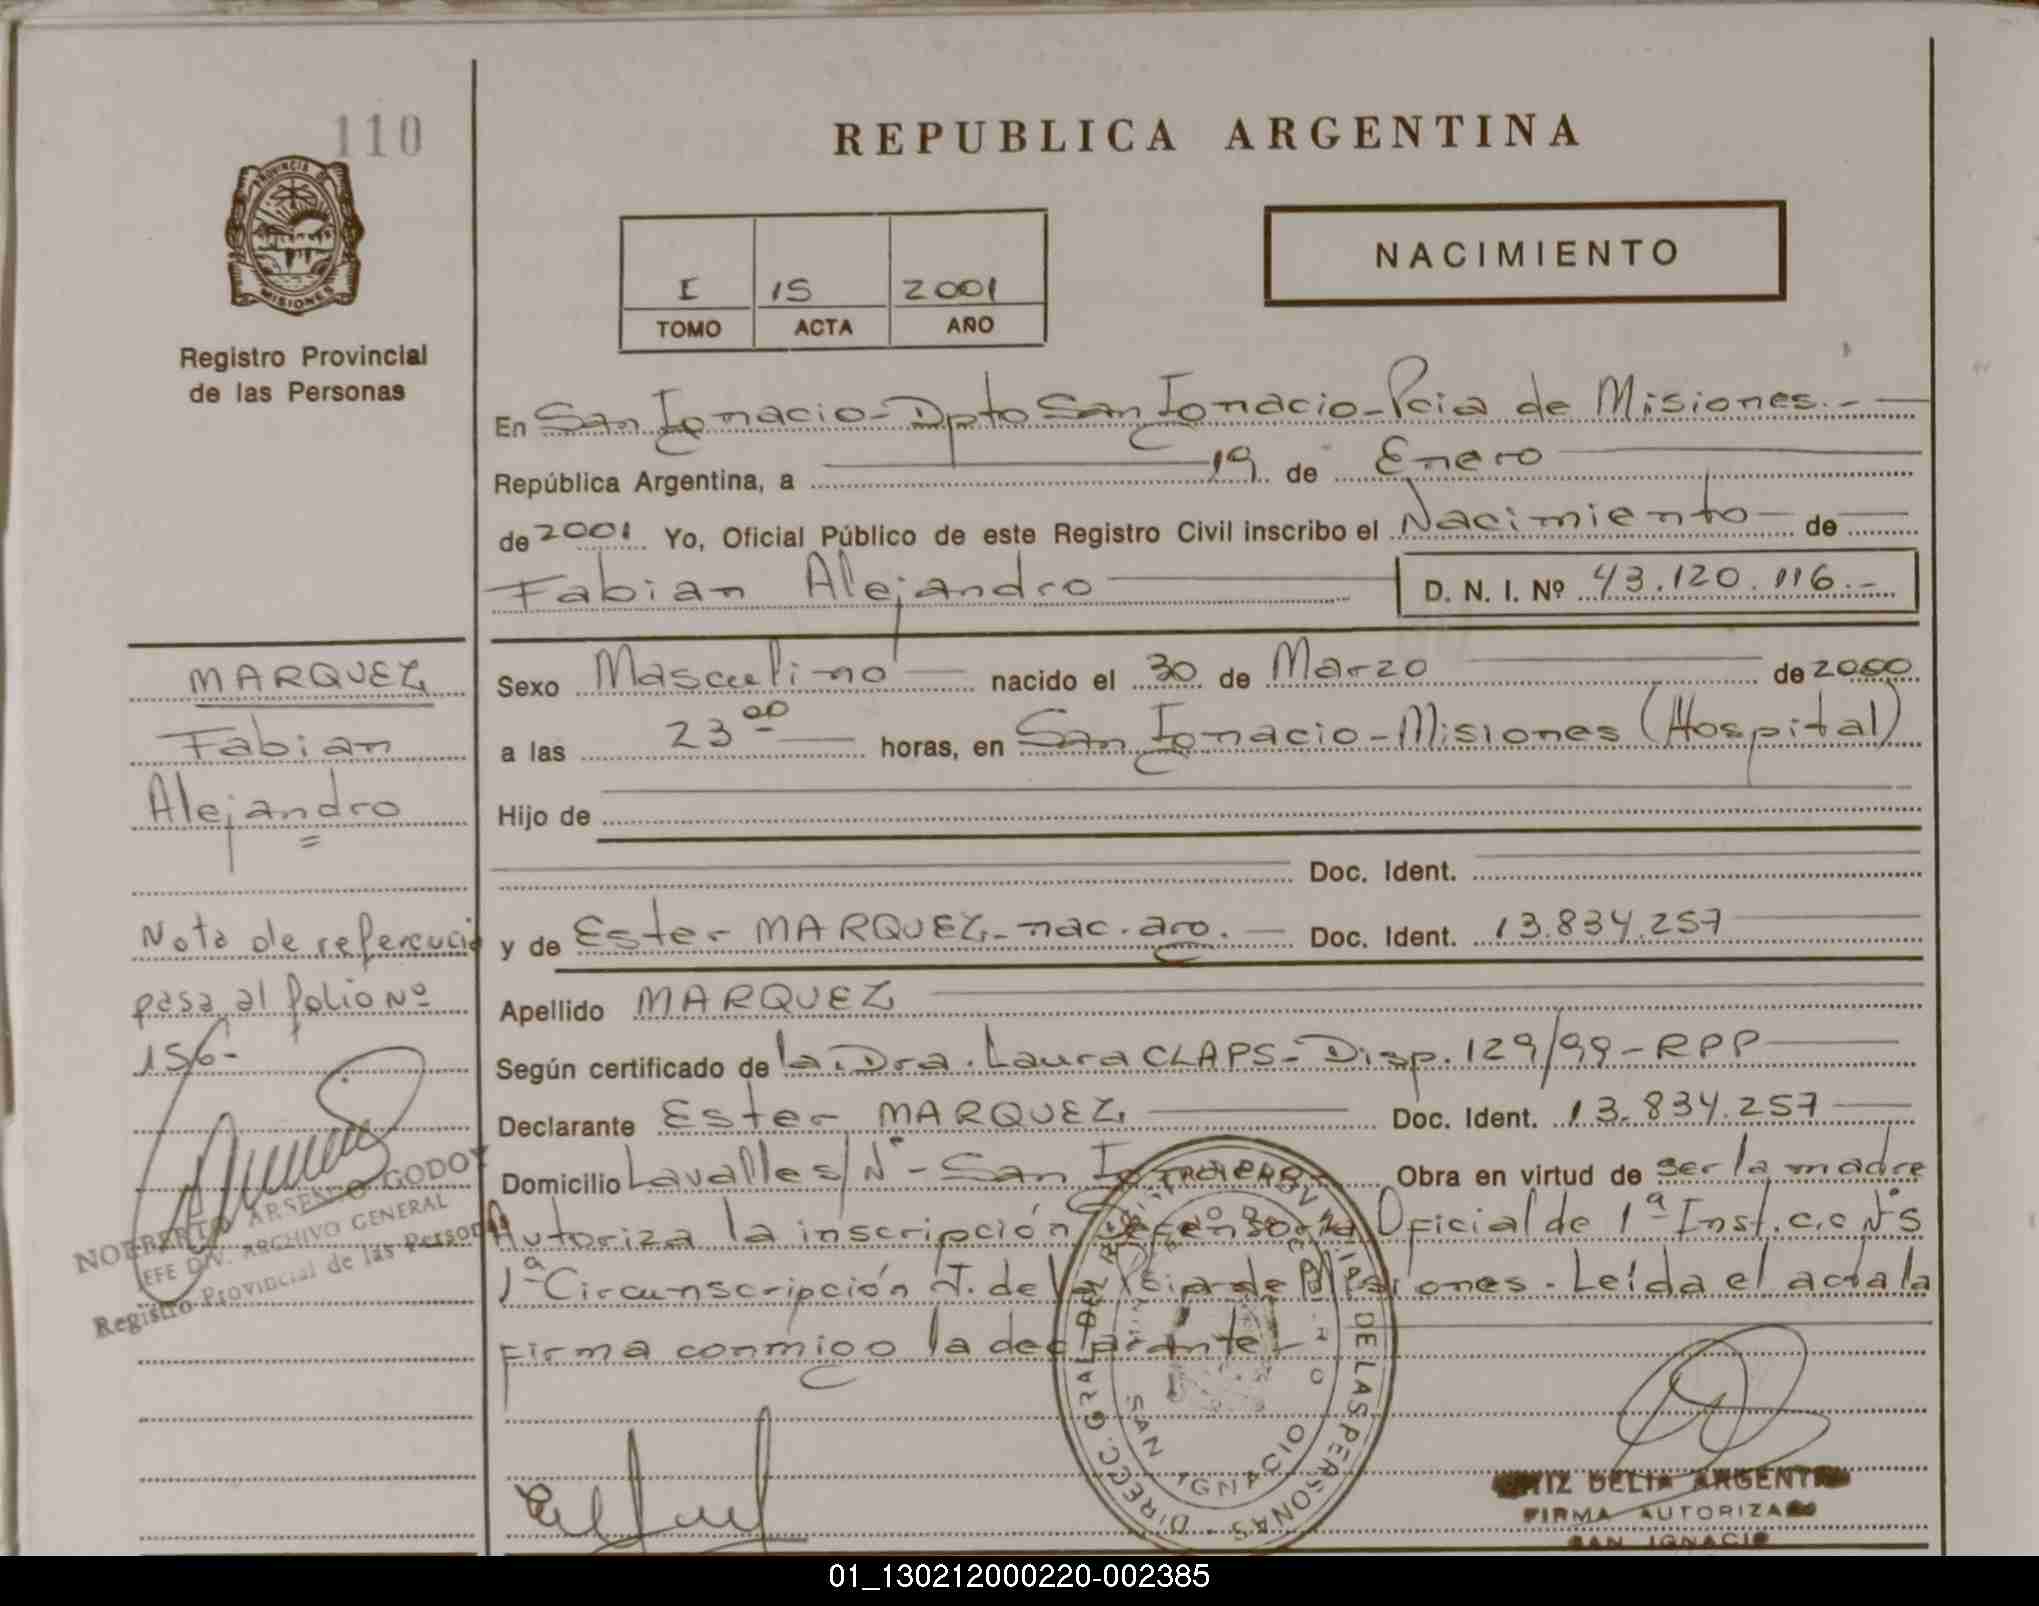 110
REPUBLICA ARGENTINA
PROVINCIA DE
MISIONES
Registro Provincial
de las Personas
I 15 2001
TOMO ACTA AÑO
NACIMIENTO
En San Ignacio - Dpto San Ignacio - Pcia de Misiones.-
República Argentina, a 19 de Enero
de 2001 Yo, Oficial Público de este Registro Civil inscribo el Nacimiento de
Fabian Alejandro D. N. I. Nº 43.120.116.-
Sexo Masculino nacido el 30 de Marzo de 2000
a las 23 00 horas, en San Ignacio - Misiones (Hospital)
Hijo de
Doc. Ident.
y de Ester MARQUEZ - nac. arg. - Doc. Ident. 13.834.257
Apellido MARQUEZ
Según certificado de la Dra. Laura CLAPS - Disp. 129/99 - RPP
Declarante Ester MARQUEZ Doc. Ident. 13.834.257
Domicilio Lavalle s/Nº - San Ignacio Obra en virtud de ser la madre
Autoriza la inscripción Defensoria Oficial de 1ª Inst. c.c Nº 5
1ª Circunscripción J. de la Pcia de Misiones. Leída el acta la
firma conmigo la declarante.-
MARQUEZ
Fabian
Alejandro
Nota de referencia
pasa al folio Nº
156-
NORBERTO ARSENIO GODOY
JEFE DIV. ARCHIVO GENERAL
Registro Provincial de las Personas
DIRECC. GRAL. DEL DE LAS PERSONAS
SAN IGNACIO
DELIA ARGENTINA
FIRMA AUTORIZADA
SAN IGNACIO
01_130212000220-002385